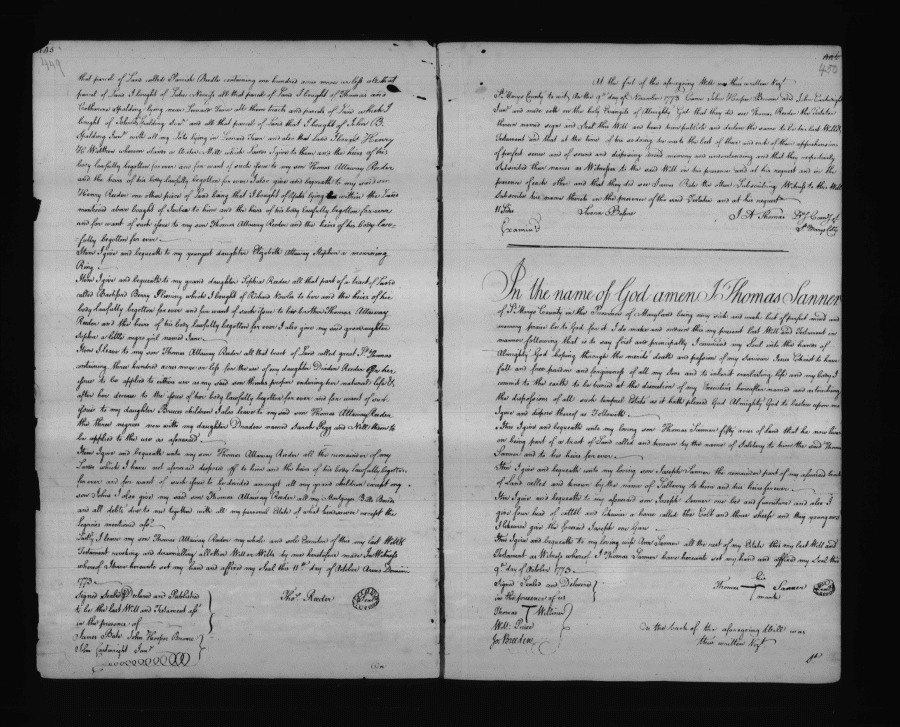 449
that parcel of Land called Parrish Bridle containing one hundred acres more or less all that
parcel of Land I bought of Luke all that parcel of Land I bought of Thomas and
Catharine Spalding lying near Leonard Town all them tracts and parcels of Land which I
bought of Spalding Junr and all that parcel of Land that I bought of John B.
Spalding Junr with all my Lots lying in Leonard Town and also that Lott I bought Henry
and the heirs of his
body lawfully begotten forever and for want of such Issue to my son Thomas Attaway Reeder
and the heirs of his body lawfully begotten for ever I also give and bequeath to my said son
Henry Reeder one other piece of Land being that I bought of lying within the Land
mentioned above bought of to him and the heirs of his body Lawfully begotten for ever
and for want of such Issue to my son Thomas Attaway Reeder and the heirs of his body law-
fully begotten for ever
Item I give and bequeath to my youngest daughter Elizabeth Attaway a mourning
Ring
Item I give and bequeath to my grand daughter Sophia Reeder all that part of a tract of Land
called Bashford Berry Fleming which I bought of Richard to her and the heirs of her
body lawfully begotten for ever and for want of such Issue to her brother Thomas Attaway
Reeder and the heirs of his body Lawfully begotten for ever I also give my said grand daughter
Sophia a little negro girl named Jane
Item I leave to my son Thomas Attaway Reeder all that tract of Land called great St Thomas
containing three hundred acres more or less for the use of my daughter Reeder
to be applied to as my said son thinks proper during her natural life &
after her decease to the Issue of her body Lawfully begotten for ever and for want of such
Issue to my daughter children I also leave to my said son Thomas Attaway Reeder
three negroes now with my daughter named Sarah Pegg and Nell them to
be applied to the use as aforesaid
Item I give and bequeath unto my son Thomas Attaway Reeder all the remainder of my
Lands which I have not already disposed off to him and the heirs of his body lawfully begotten
forever and for want of such Issue to be divided amongst all my grand children except my
son Johns I also give my said son Thomas Attaway Reeder all my Mortgage Bills Bonds
and all debts due to me together with all my personal Estate of what kind soever except the
legacies mentioned afsd
Lastly I leave my son Thomas Attaway Reeder my whole and sole Executor of this my last Will &
Testament revoking and disannulling all other Will or Wills by me heretofore made In Witness
whereof I have hereunto set my hand and affixed my Seal this 11th day of October Anno Domini
1773
Signed Sealed Declared and Published
to be the last Will and Testament afsd
in the presence of
James Bate John Hooper Broome
John Cartwright Junr
Thos Reeder
450
At the foot of the aforegoing Will was thus written Vizt
St Marys County to wit the 9th day of November 1773 Came John Hooper Broome and John Cartwright
Junr and made oath on the Holy Evangels of Almighty God that they did see Thomas Reeder the Testator
thereof named sign and Seal this Will and heard him publish and declare the same to be his last Will &
Testament and that at the time of his so doing he was to the best of their and each of their apprehensions
of perfect sense and of sound and disposing mind memory and understanding and that they respectively
subscribed their names as Witnesses to the said Will in his presence and at his request and in the
presence of each other and that they did see James Bate the other Subscribing Witness to the Will
subscribe his name thereto in the presence of the said Testator and at his request
Sworn Before
J. A. Thomas Dy Comry of
St Marys Coty
Examined
In the name of God amen I Thomas Sanner
of St Marys County in the Province of Maryland being very sick and weak but of perfect mind and
memory praise be to God for it do make and ordain this my present last Will and Testament in
manner following that is to say first and principally I commend my Soul into the hands of
Almighty God hoping through the merits death and passion of my Saviour Jesus Christ to have
full and free pardon and forgiveness of all my Sins and to inherit everlasting life and my body I
commit to the earth to be buried at the discretion of my Executrix hereafter named and as touching
the disposition of all such temporal Estate as it hath pleased God Almighty God to bestow upon me
I give and dispose thereof as Followeth
Item I give and bequeath unto my loving son Thomas Sanner fifty acres of Land that he now lives
on being part of a tract of Land called and known by the name of to him the said Thomas
Sanner and to his heirs for ever
Item I give and bequeath unto my loving son Joseph Sanner the remainder part of my aforesaid tract
of Land called and known by the name of to him and his heirs forever
Item I give and bequeath to my aforesaid son Joseph Sanner one bed and furniture and also I
give four head of cattle and likewise a horse called the Colt and three sheep and they young ones
I likewise give the Joseph one Gun
Item I give and bequeath to my loving wife Ann Sanner all the rest of my Estate this my last Will and
Testament as Witness whereof I Thomas Sanner have hereunto set my hand and affixed my Seal this
9th day of October 1773
Signed Sealed and Delivered
in the presence of us
Thomas T Williams
Will: Price
Jos Breeden
his
Thomas Sanner
mark
On the back of the aforegoing Will was
thus written Vizt